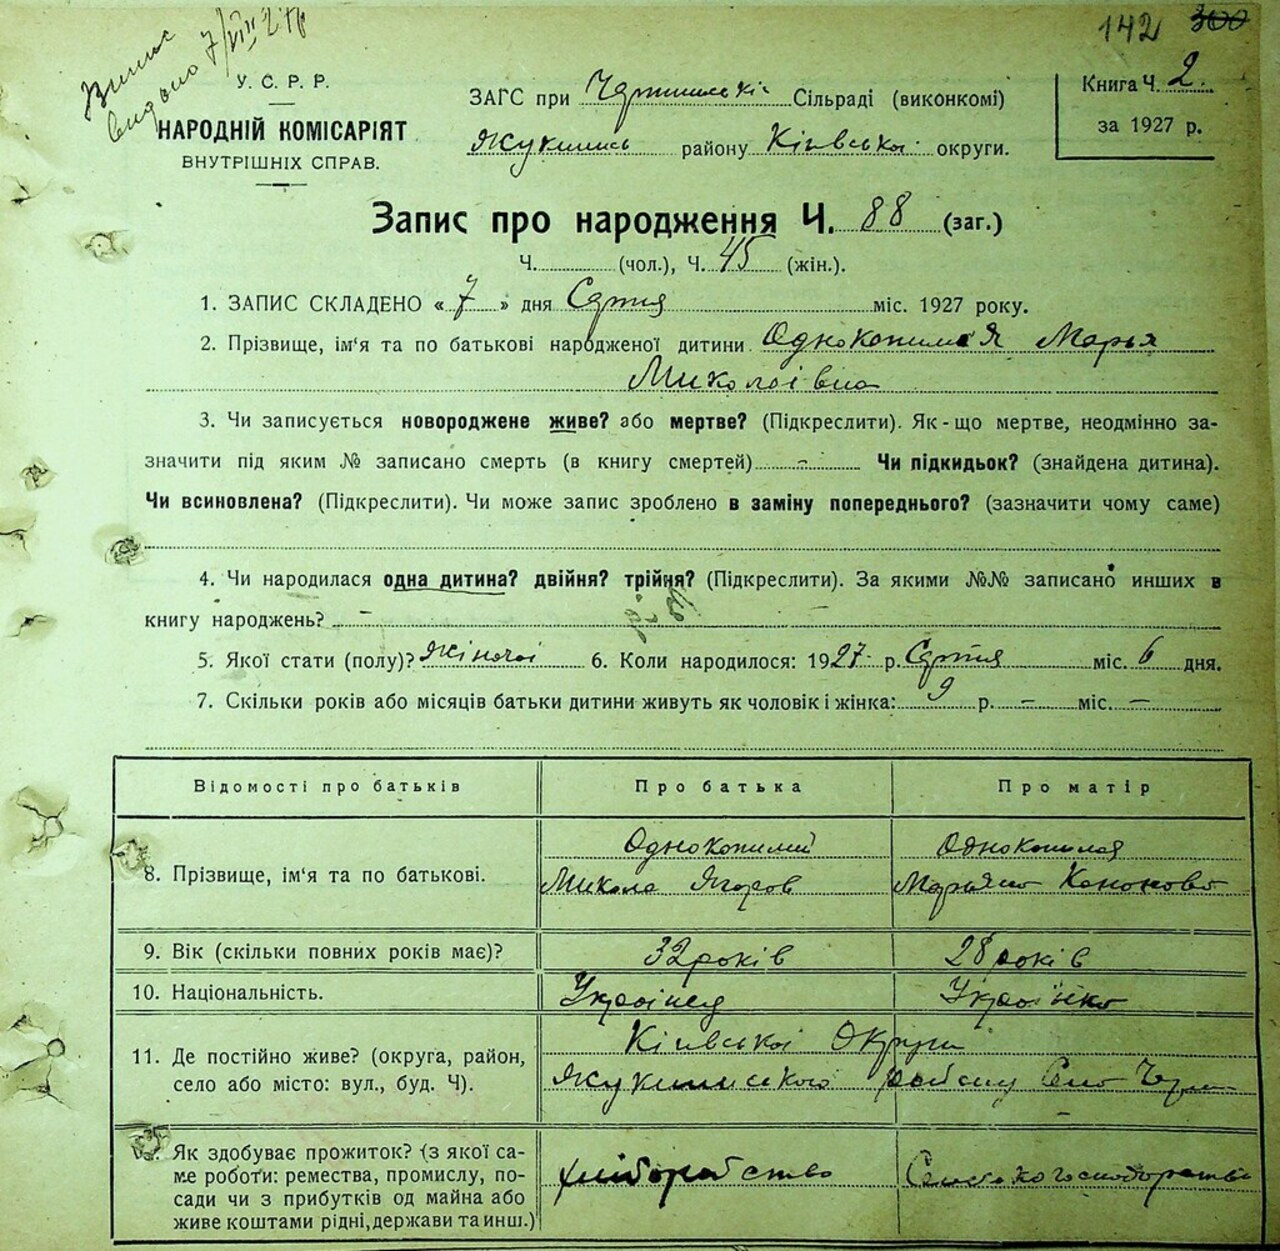 142 300
Видано 7/VIII 27 р
У. С. Р. Р.
НАРОДНІЙ КОМІСАРІЯТ
ВНУТРІШНІХ СПРАВ.
ЗАГС при Сільраді (виконкомі)
району Київської округи.
Книга Ч. 2
за 1927 р.
Запис про народження Ч. 88 (заг.)
Ч. (чол.), Ч. 45 (жін.).
1. ЗАПИС СКЛАДЕНО « 7 » дня Серпня міс. 1927 року.
2. Прізвище, ім'я та по батькові народженої дитини Однокопилая Марья
Миколаівна
3. Чи записується новороджене живе? або мертве? (Підкреслити). Як-що мертве, неодмінно за-
значити під яким № записано смерть (в книгу смертей) – Чи підкидьок? (знайдена дитина).
Чи всиновлена? (Підкреслити). Чи може запис зроблено в заміну попереднього? (зазначити чому саме)
4. Чи народилася одна дитина? двійня? трійня? (Підкреслити). За якими №№ записано инших в
книгу народжень? –
5. Якої стати (полу)? Жіночоі 6. Коли народилося: 1927 р. Серпня міс. 6 дня.
7. Скільки років або місяців батьки дитини живуть як чоловік і жінка: 9 р. – міс. –
Відомості про батьків Про батька Про матір
Однокопилий Однокопилая
8. Прізвище, ім'я та по батькові. Микола Ягоров Марьяна Кононова
9. Вік (скільки повних років має)? 32 років 28 років
10. Національність. Украінец Украінка
Київської Округи
11. Де постійно живе? (округа, район,
село або місто: вул., буд. Ч). району Село
Як здобуває прожиток? (з якої са-
ме роботи: ремества, промислу, по-
сади чи з прибутків од майна або
живе коштами рідні, держави та инш.) хліборобство